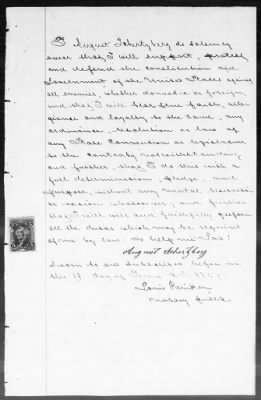 I August Schertzberg do solemnly
swear that I will support, protect
and defend the constitution and
Government of the United States against
all enemies, whether domestic or foreign,
and that I will bear true faith, alle-
giance and loyalty to the same, any
ordinance, resolution or law of
any State Convention or legislature
to the Contrary notwithstanding,
and further, that I do this with a
full determination, pledge, and
purpose, without any mental reservation
or evasion whatsoever, and further
that I will well and faithfully perform
all the duties which may be required
of me by law. So help me God!
August
Sworn to and subscribed before me
this 19 day of June A.D.
Louis
Notary Public